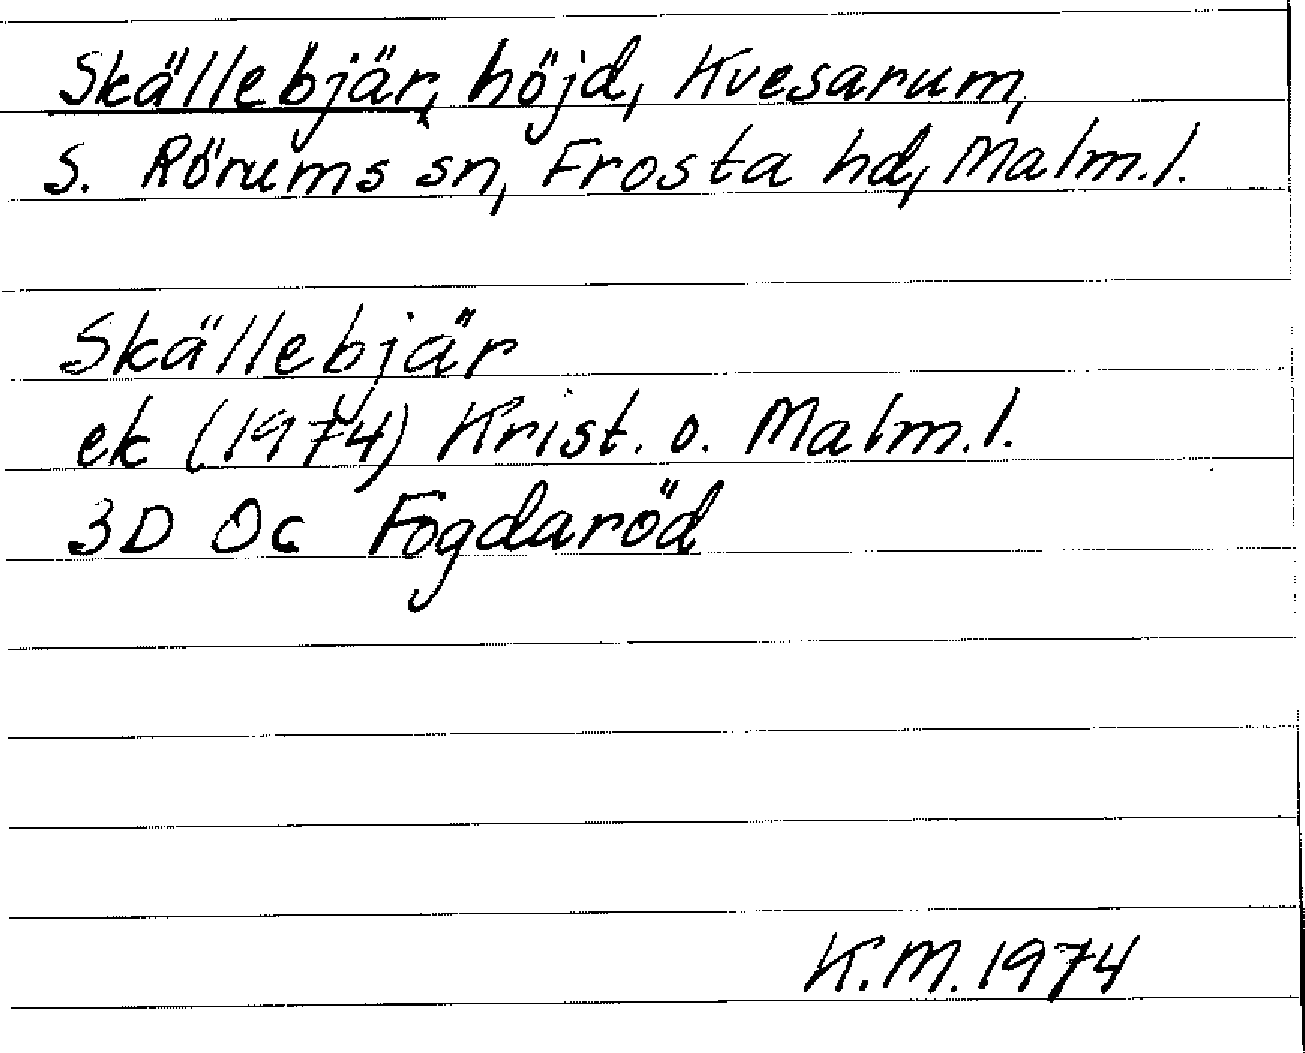 Skällebjär, höjd, Kvesarum,
S. Rörums sn, Frosta hd, Malm.l.
Skällebjär
ek (1974) Krist. o. Malm.l.
3D 0c Fogdaröd
K.M. 1974